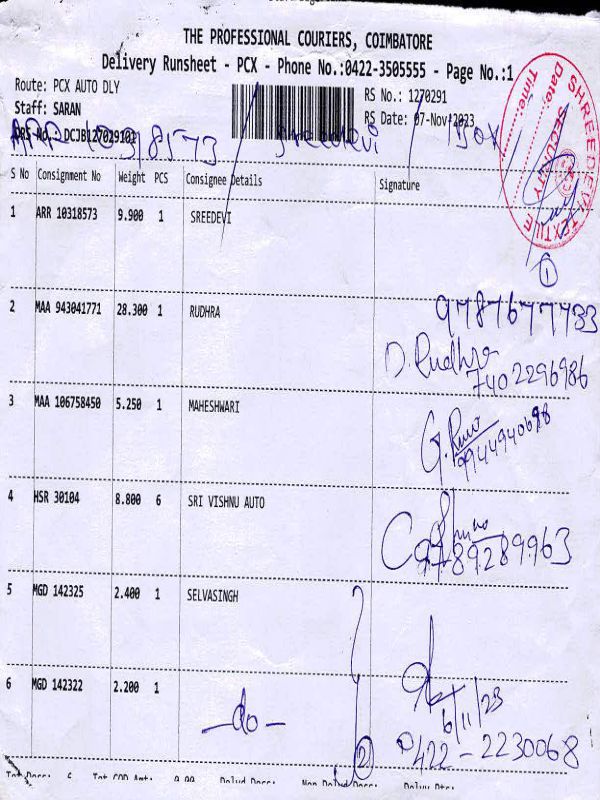 THE PROFESSIONAL COURIERS, COIMBATORE
Delivery Runsheet - PCX - Phone No.:0422-3505555 - Page No.:1
Route: PCX AUTO DLY
RS No.: 1270291
Staff: SARAN
RS Date: 07-Nov-2023
DRS No.: DCJB127029101
ARR 10318573 Sreedevi 1 Box
SHREEDEVI TEXTILE
Date:
Time:
SECURITY
S No Consignment No Weight PCS Consignee Details Signature
1 ARR 10318573 9.900 1 SREEDEVI
1
9787677733
2 MAA 943041771 28.300 1 RUDHRA
D. Rudhra
7402296986
3 MAA 106758450 5.250 1 MAHESHWARI
9944940698
4 HSR 30104 8.800 6 SRI VISHNU AUTO
9789289963
5 MGD 142325 2.400 1 SELVASINGH
6 MGD 142322 2.200 1
-do-
6/11/23
2
0422-2230068